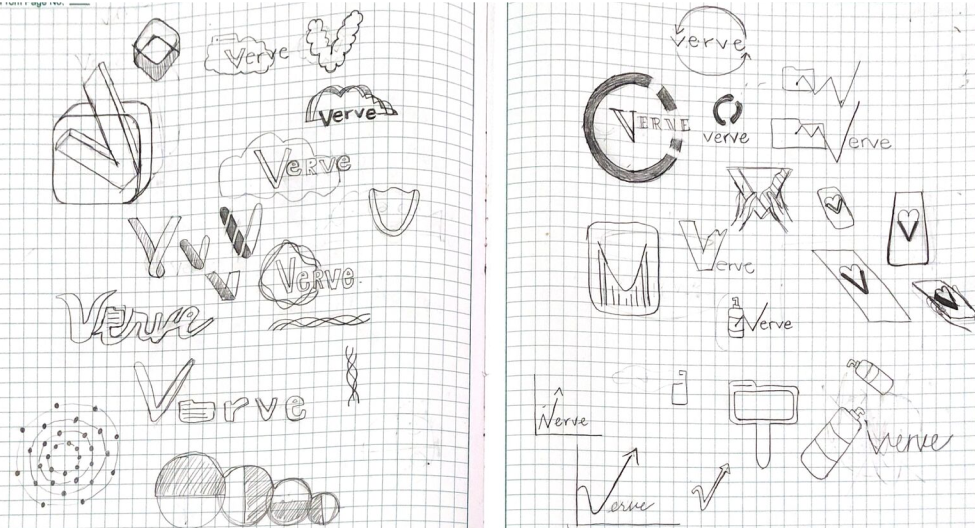 From Page No.
Verve
Verve
VERVE
VERVE
Verve
Verve
verve
VERVE
verve
Verve
Verve
Verve
Verve
Verve
Verve